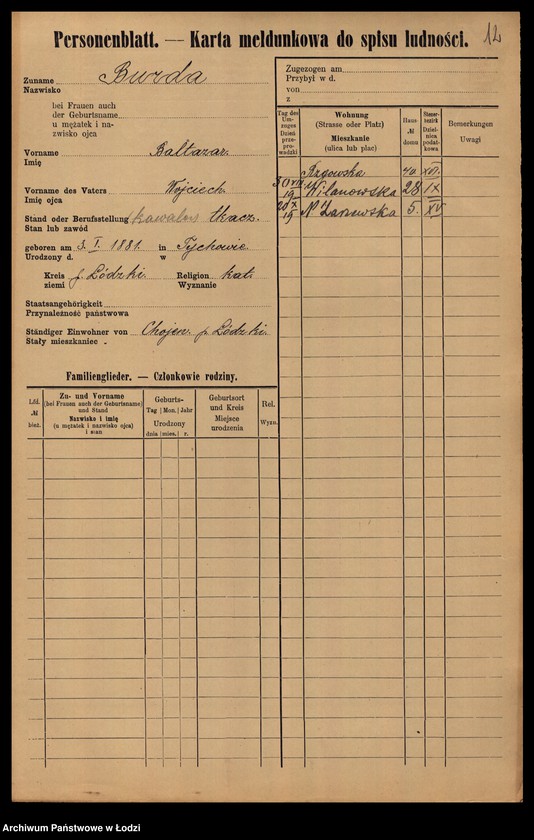 Personenblatt. — Karta meldunkowa do spisu ludności.
12
Zuname Burda
Nazwisko
bei Frauen auch
der Geburtsname
u mężatek i na-
zwisko ojca
Vorname Baltazar.
Imię
Vorname des Vaters Wojciech
Imię ojca
Stand oder Berufsstellung kawaler tkacz.
Stan lub zawód
geboren am 3. I. 1881. in Tychowie
Urodzony d. w
Kreis p. Łódzki Religion kat.
ziemi Wyznanie
Staatsangehörigkeit
Przynależność państwowa
Ständiger Einwohner von Chojen. p. Łódzki.
Stały mieszkaniec .
Familienglieder. — Członkowie rodziny.
Lfd. № bież.
Zu- und Vorname
(bei Frauen auch der Geburtsname)
und Stand
Nazwisko i imię
(u mężatek i nazwisko ojca)
i stan
Geburts-
Tag Mon. Jahr
Urodzony
dnia mies. r.
Geburtsort
und Kreis
Miejsce
urodzenia
Rel.
Wyzn.
Zugezogen am
Przybył w d.
von
z
Tag des
Um-
zuges
Dzień
prze-
prowadzki
Wohnung
(Strasse oder Platz)
Mieszkanie
(ulica lub plac)
Haus-
№
domu
Steuer-
bezirk
Dziel-
nica
podat-
kowa
Bemerkungen
Uwagi
Rzgowska 40. XVI.
30 VIII 19 Wilanowska 28 IX
20 X 19 N Zarzewska 5. XV
Archiwum Państwowe w Łodzi